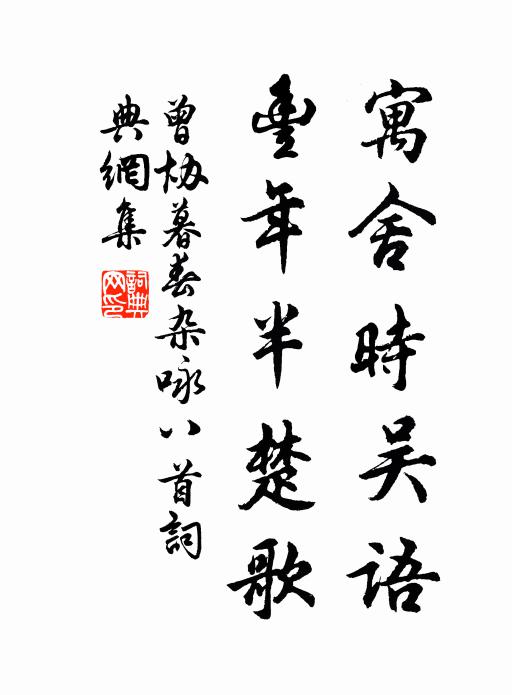 寓舍時吴語
豐年半楚歌
曾协暮春杂咏八首詞
典網集
詞典网印